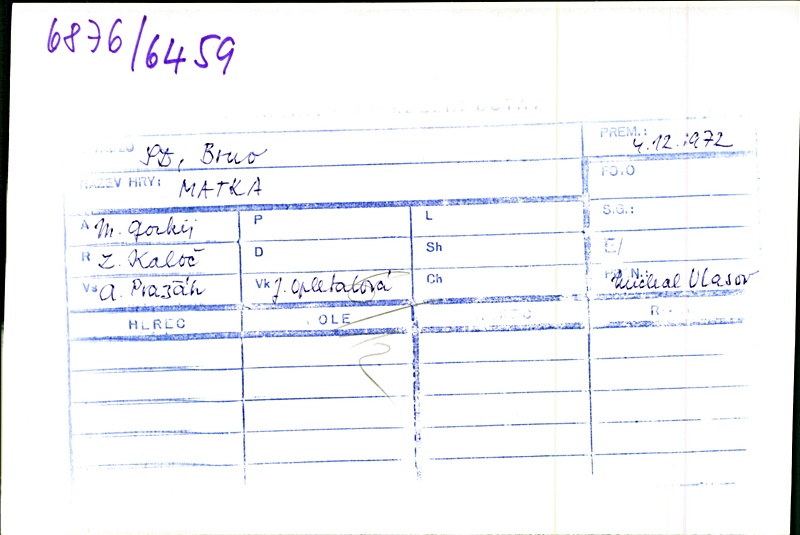 6876/6459
SD, Brno
PREM.: 4.12.1972
NÁZEV HRY: MATKA
FOTO
A M. Gorkij
P
L
S.G.:
R Z. Kaloč
D
Sh
Vs A. Pražák
Vk J. Opletalová
Ch
Michal Vlasov
HEREC
ROLE